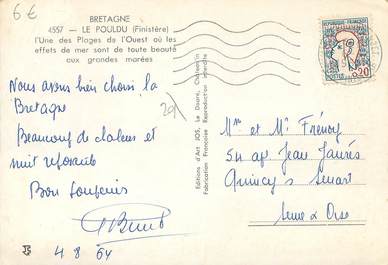 6€
BRETAGNE
4557 - LE POULDU (Finistère)
l'Une des Plages de l'Ouest où les
effets de mer sont de toute beauté
aux grandes marées
Nous avons bien choisi la
Bretagne
Beaucoup de chaleur et
nuit
Bon Souvenir
4 8 64
Editions d'Art JOS, Le Doaré, Chateaulin
Fabrication Française Reproduction interdite
POSTES
0,20
Mme et Mr Frénoy
54 Jean Jaurès
Quincy s/ Senart
Seine & Oise